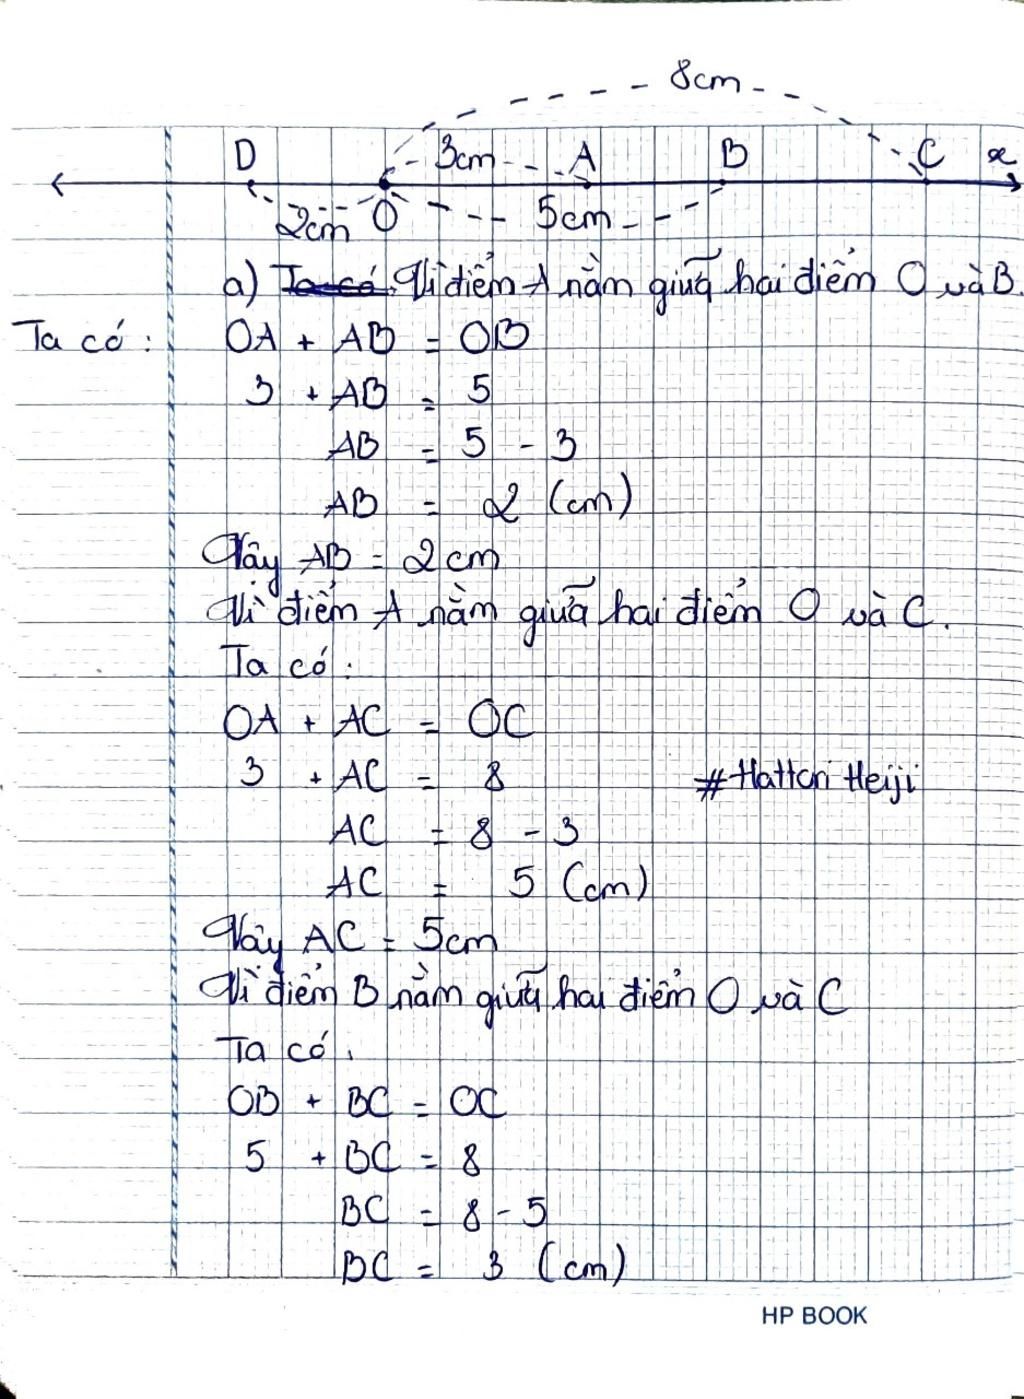 8cm
D 3cm A B C x
2cm O 5cm
a) Ta có Vì điểm A nằm giữa hai điểm O và B.
Ta có : OA + AB = OB
3 + AB = 5
AB = 5 - 3
AB = 2 (cm)
Vậy AB = 2cm
Vì điểm A nằm giữa hai điểm O và C.
Ta có :
OA + AC = OC
3 + AC = 8 #Hattori Heiji
AC = 8 - 3
AC = 5 (cm)
Vậy AC = 5cm
Vì điểm B nằm giữa hai điểm O và C
Ta có .
OB + BC = OC
5 + BC = 8
BC = 8 - 5
BC = 3 (cm)
HP BOOK